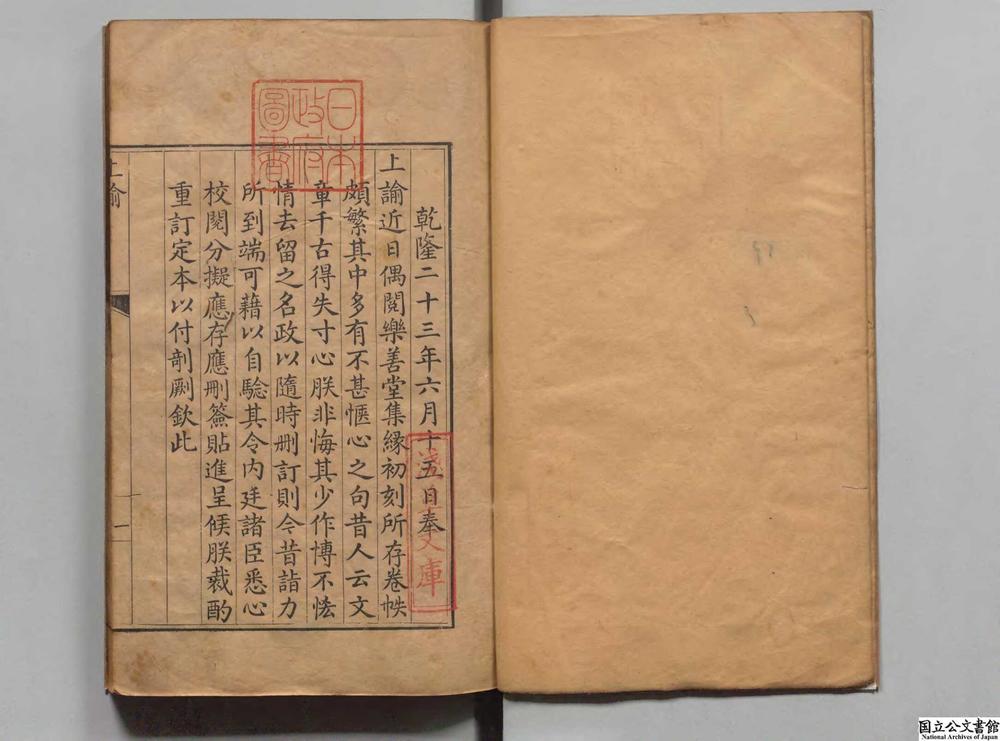 乾隆二十三年六月十五日奉
上諭近日偶閱樂善堂集縁初刻所存卷帙
頗繁其中多有不甚愜心之句昔人云文
章千古得失寸心朕非悔其少作博不恡
情去留之名政以隨時刪訂則今昔詣力
所到端可藉以自驗其令内廷諸臣悉心
校閱分擬應存應刪簽貼進呈候朕裁酌
重訂定本以付剞劂欽此
上諭
一
日本
政府
圖書
淺
文庫
国立公文書館
National Archives of Japan